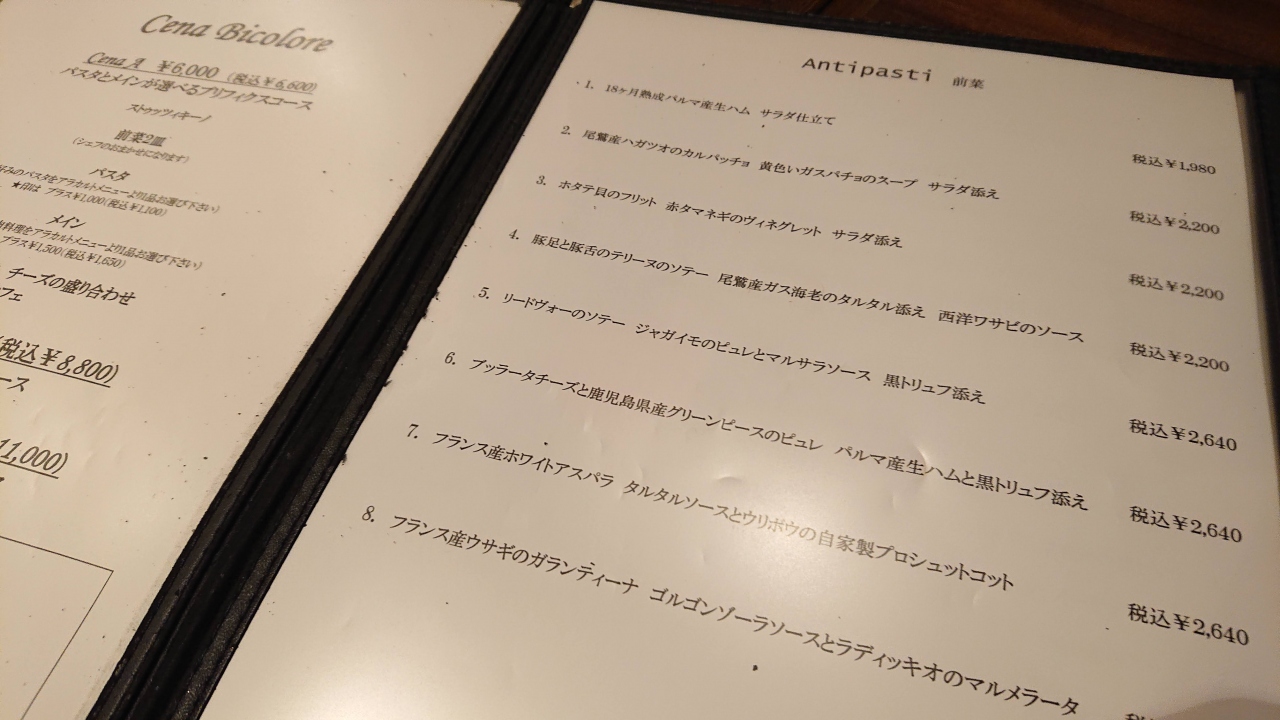 Cena Bicolore
Cena A ¥6,000 (税込¥6,600)
パスタとメインが選べるプリフィクスコース
ストゥッツィキーノ
前菜2皿
(シェフのおまかせになります)
パスタ
好みのパスタをアラカルトメニューより1品お選び下さい)
★印は プラス¥1,000(税込¥1,100)
メイン
料理をアラカルトメニューより1品お選び下さい)
プラス¥1,500(税込¥1,650)
チーズの盛り合わせ
フェ
税込¥8,800)
ース
11,000)
Antipasti 前菜
1. 18ヶ月熟成パルマ産生ハム サラダ仕立て
税込¥1,980
2. 尾鷲産ハガツオのカルパッチョ 黄色いガスパチョのスープ サラダ添え
税込¥2,200
3. ホタテ貝のフリット 赤タマネギのヴィネグレット サラダ添え
税込¥2,200
4. 豚足と豚舌のテリーヌのソテー 尾鷲産ガス海老のタルタル添え 西洋ワサビのソース
税込¥2,200
5. リードヴォーのソテー ジャガイモのピュレとマルサラソース 黒トリュフ添え
税込¥2,640
6. ブッラータチーズと鹿児島県産グリーンピースのピュレ パルマ産生ハムと黒トリュフ添え
税込¥2,640
7. フランス産ホワイトアスパラ タルタルソースとウリボウの自家製プロシュットコット
税込¥2,640
8. フランス産ウサギのガランティーナ ゴルゴンゾーラソースとラディッキオのマルメラータ